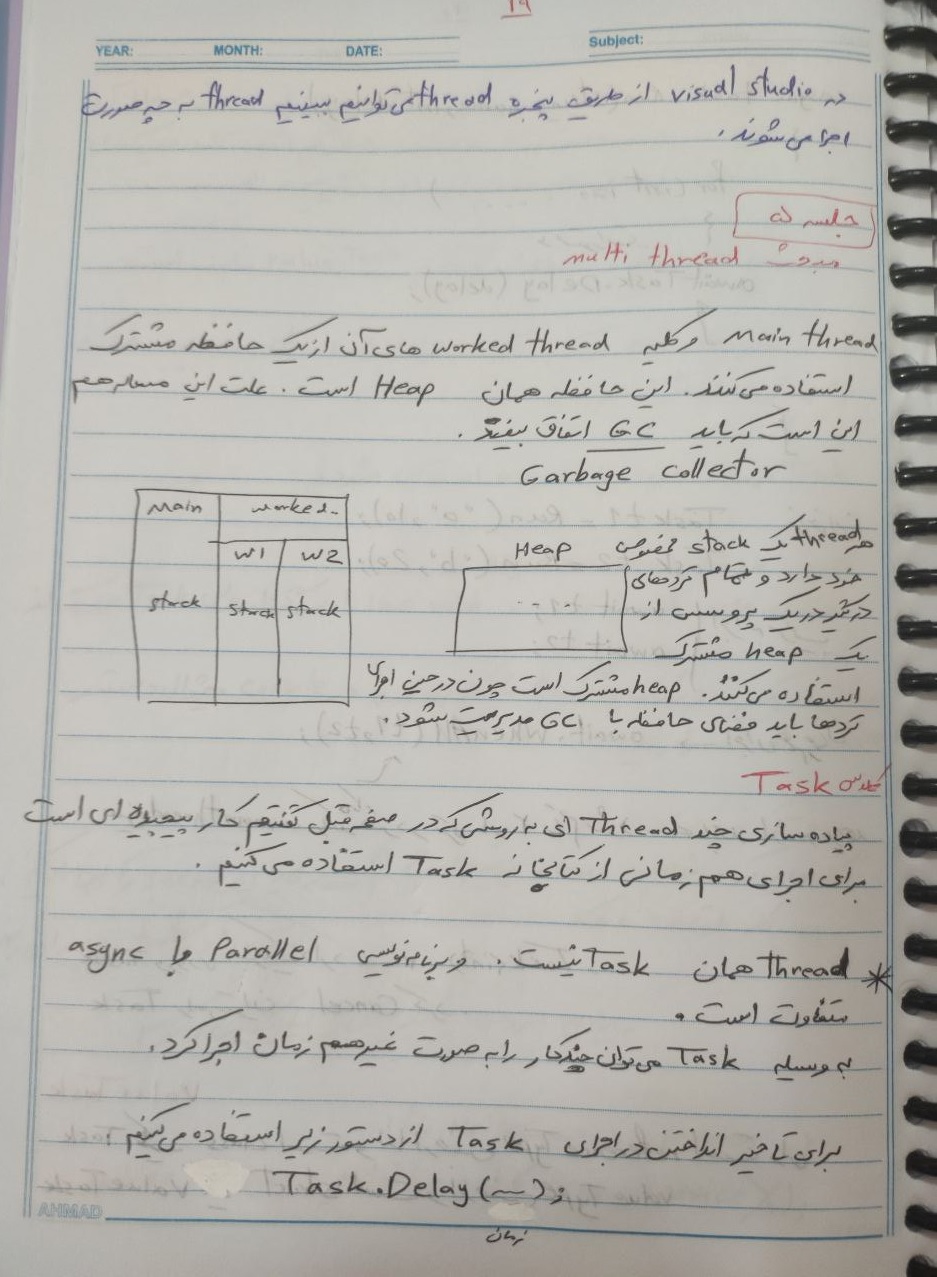 ۱۹
YEAR: MONTH: DATE: Subject:
در visual studio از طریق پنجره thread می توانیم ببینیم thread به چه صورت
اجرا می شوند.
جلسه ۵
مبحث multi thread
Main thread و کلیه worked thread های آن از یک حافظه مشترک
استفاده می کنند. این حافظه همان Heap است. علت این مساله هم
این است که باید GC اتفاق بیفتد.
Garbage collector
هر thread یک stack مخصوص
خود دارد و تمام تردهای
درگیر در یک پروسس از
یک heap مشترک
استفاده می کنند. heap مشترک است چون در حین اجرای
تردها باید فضای حافظه با GC مدیریت شود.
Heap
Main worked
W1 W2
stack stack stack
کلاس Task
پیاده سازی چند Thread ای به روشی که در صفحه قبل گفتیم کار پیچیده ای است
برای اجرای هم زمانی از کتابخانه Task استفاده می کنیم.
* Thread همان Task نیست. و برنامه نویسی Parallel با async
متفاوت است.
به وسیله Task می توان چند کار را به صورت غیر هم زمان اجرا کرد.
برای تاخیر انداختن در اجرای Task از دستور زیر استفاده می کنیم:
Task.Delay(~);
زمان
AHMAD